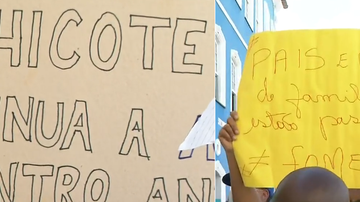 HICOTE
NUA A
NTRO AN
PAIS E
de famíl
estão pas
≠ FOME